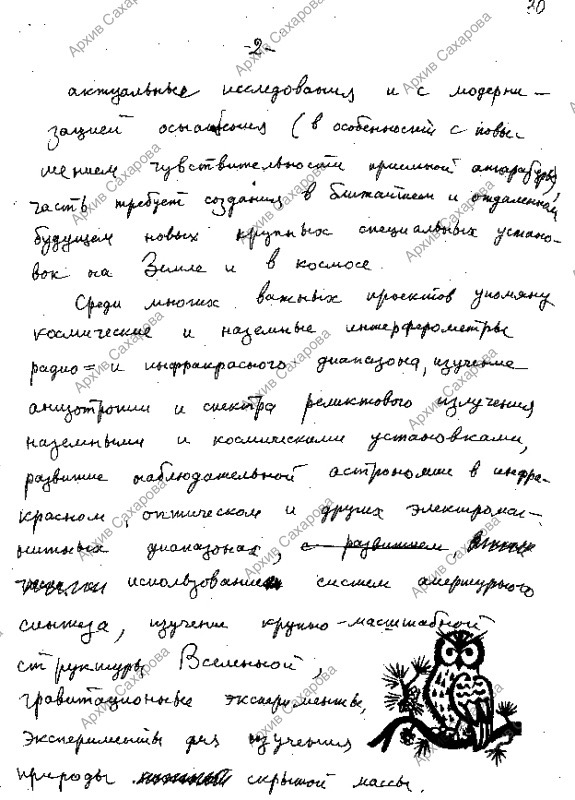 30
-2-
актуальные исследования и с модерни-
зацией оснащения (в особенности с повы-
шением чувствительности приемной аппаратуры),
часть требует создания в ближайшем и отдаленном
будущем новых крупных специальных устано-
вок на Земле и в космосе.
Среди многих важных проектов упомяну
космические и наземные интерферометры
радио= и инфракрасного диапазона, изучение
анизотропии и спектра реликтового излучения
наземными и космическими установками,
развитие наблюдательной астрономии в инфра-
красном, оптическом и других электромаг-
нитных диапазонах, с развитием
использование систем апертурного
синтеза, изучение крупно-масштабной
структуры Вселенной,
гравитационные эксперименты,
эксперименты для изучения
природы скрытой массы.